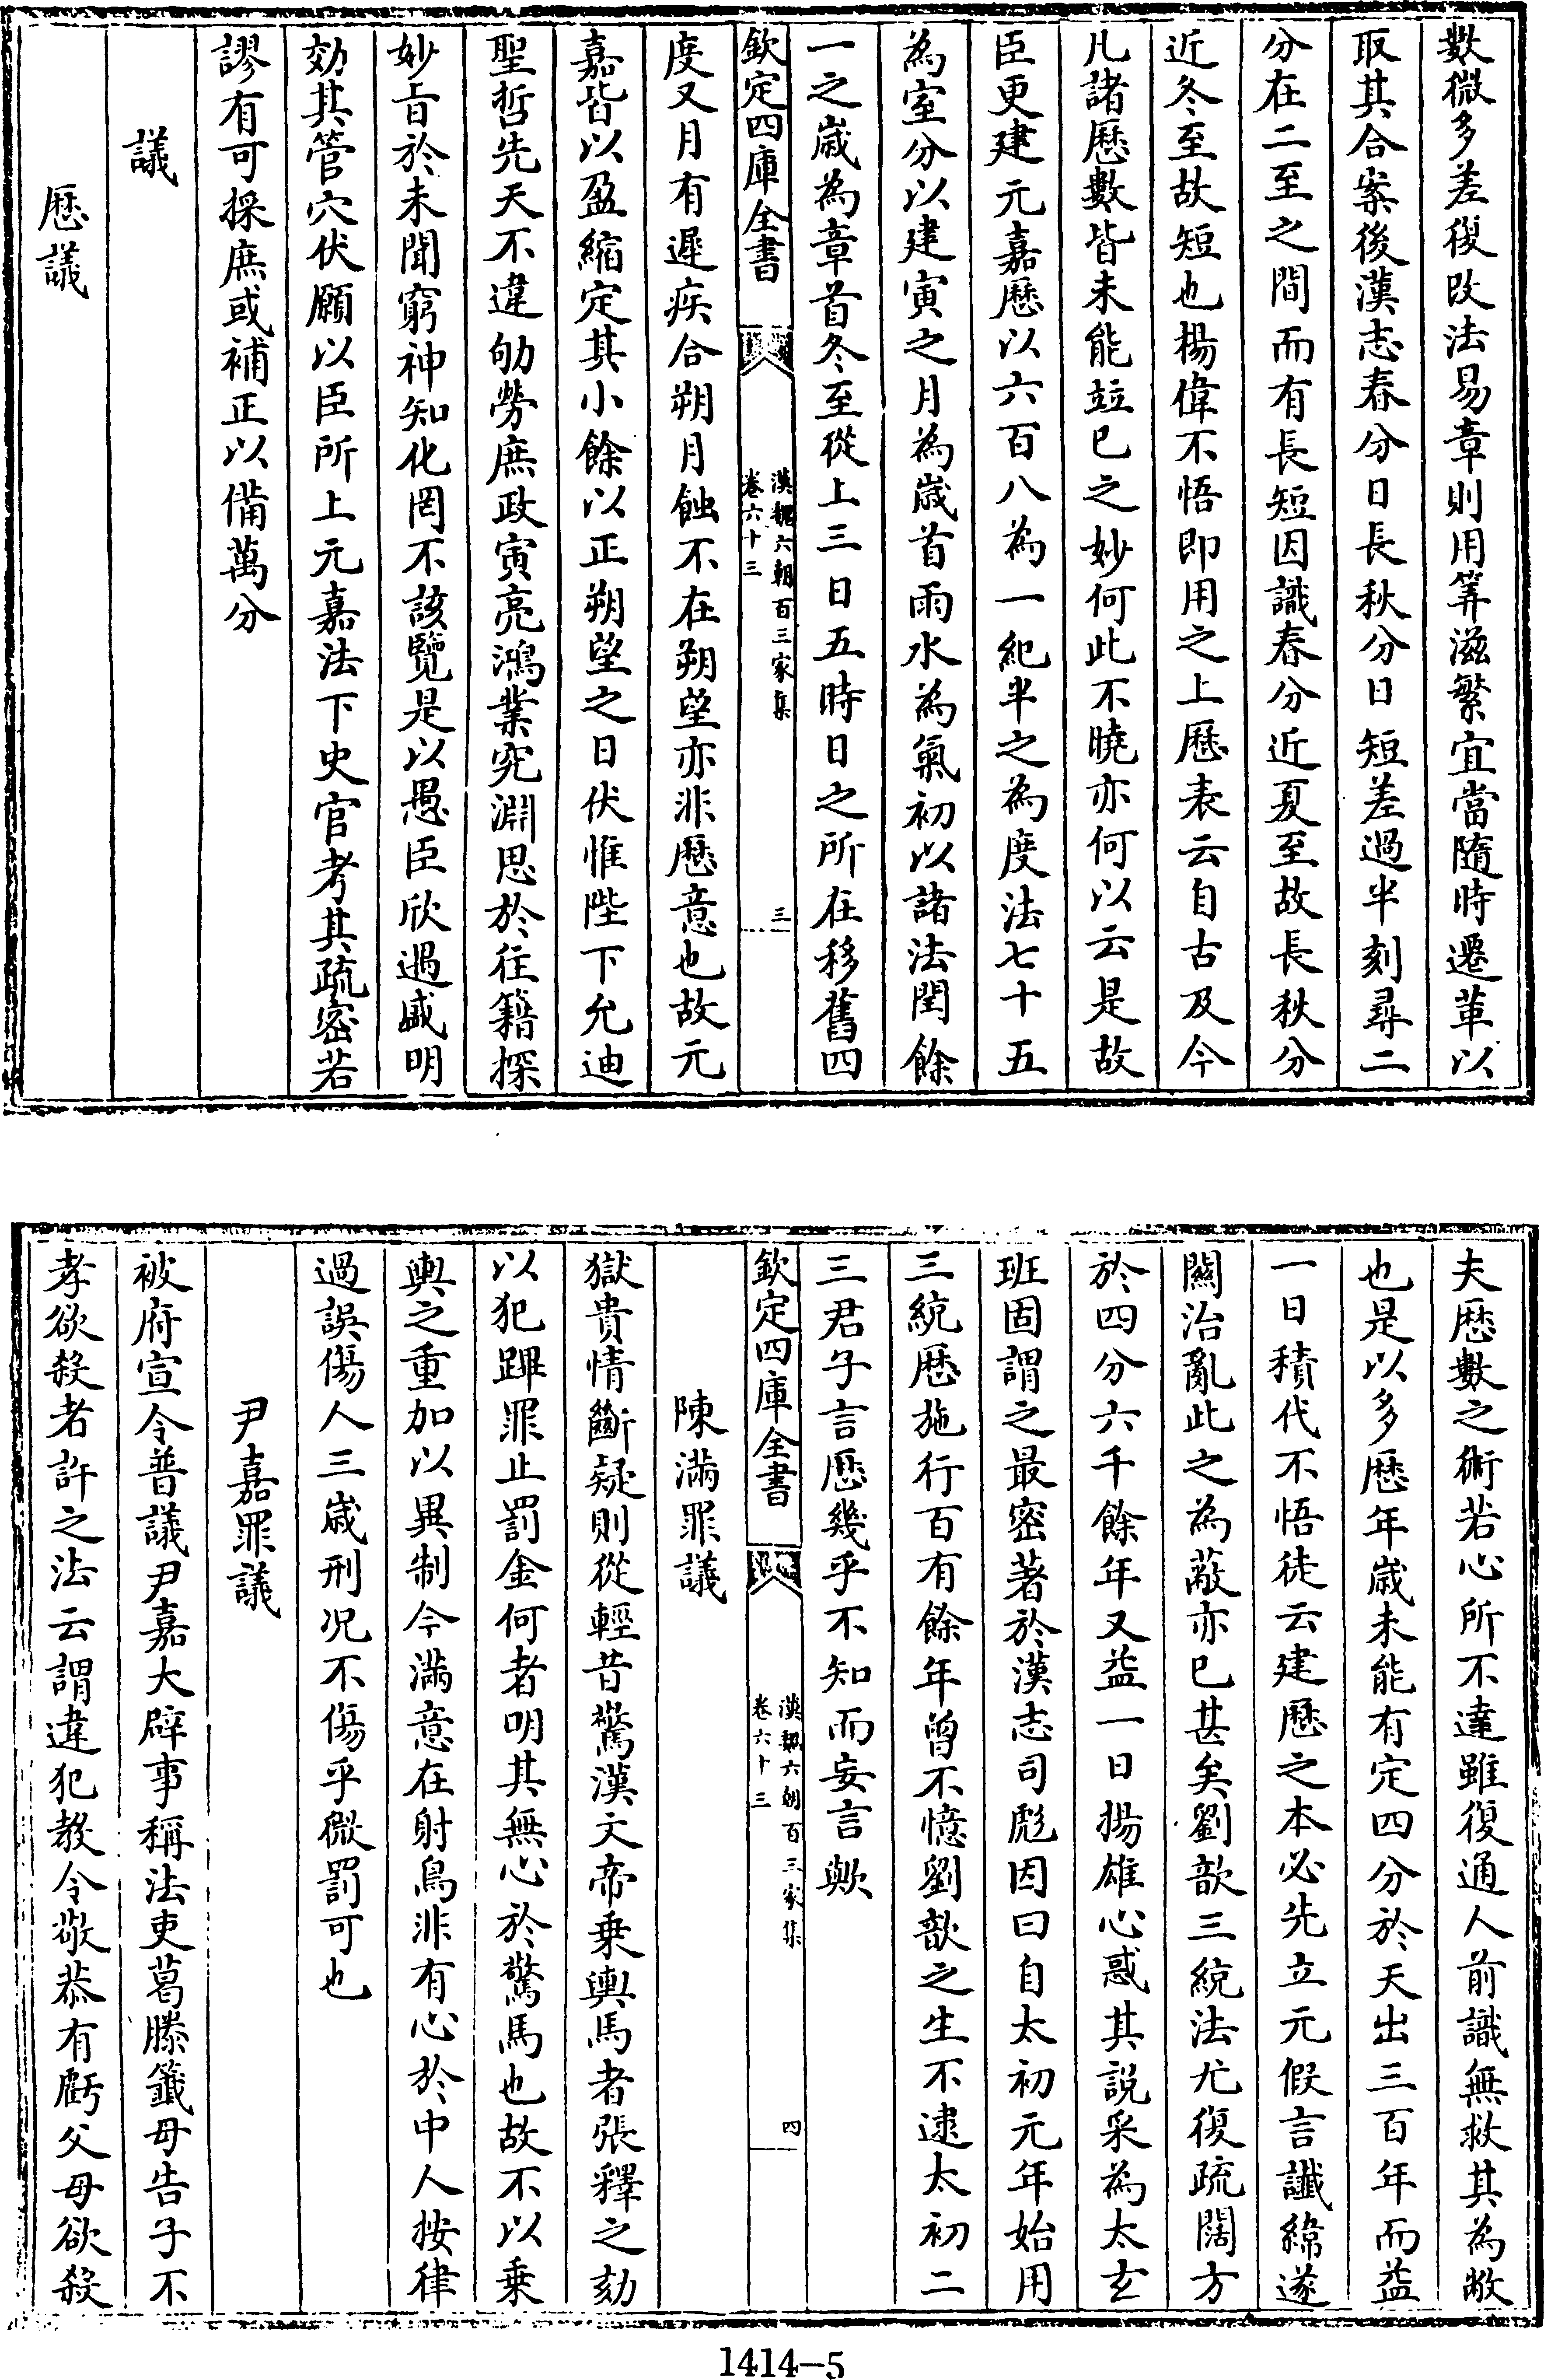 數微多差復改法易章則用筭滋繁宜當隨時遷革以
取其合案後漢志春分日長秋分日短差過半刻尋二
分在二至之間而有長短因識春分近夏至故長秋分
近冬至故短也楊偉不悟即用之上厯表云自古及今
凡諸厯數皆未能竝已之妙何此不曉亦何以云是故
臣更建元嘉厯以六百八為一紀半之為度法七十五
為室分以建寅之月為嵗首雨水為氣初以諸法閏餘
一之嵗為章首冬至從上三日五時日之所在移舊四
欽定四庫全書
漢魏六朝百三家集
卷六十三
三
度又月有遲疾合朔月蝕不在朔望亦非厯意也故元
嘉皆以盈縮定其小餘以正朔望之日伏惟陛下允迪
聖哲先天不違劬勞庶政寅亮鴻業究淵思於往籍探
妙旨於未聞窮神知化罔不該覽是以愚臣欣遇盛明
効其管穴伏願以臣所上元嘉法下史官考其疏密若
謬有可採庶或補正以備萬分
議
厯議
夫厯數之術若心所不達雖復通人前識無救其為敝
也是以多歴年嵗未能有定四分於天出三百年而益
一日積代不悟徒云建厯之本必先立元假言讖緯遂
關治亂此之為蔽亦已甚矣劉歆三統法尤復疏闊方
於四分六千餘年又益一日揚雄心惑其説采為太𤣥
班固謂之最密著於漢志司彪因曰自太初元年始用
三統厯施行百有餘年曾不憶劉歆之生不逮太初二
三君子言厯幾乎不知而妄言歟
欽定四庫全書
漢魏六朝百三家集
卷六十三
四
陳滿罪議
獄貴情斷疑則從輕昔驚漢文帝乗輿馬者張釋之劾
以犯蹕罪止罰金何者明其無心於驚馬也故不以乗
輿之重加以異制今滿意在射鳥非有心於中人按律
過誤傷人三嵗刑況不傷乎微罰可也
尹嘉罪議
被府宣令普議尹嘉大辟事稱法吏葛滕籤母告子不
孝欲殺者許之法云謂違犯教令敬恭有虧父母欲殺
1414-5